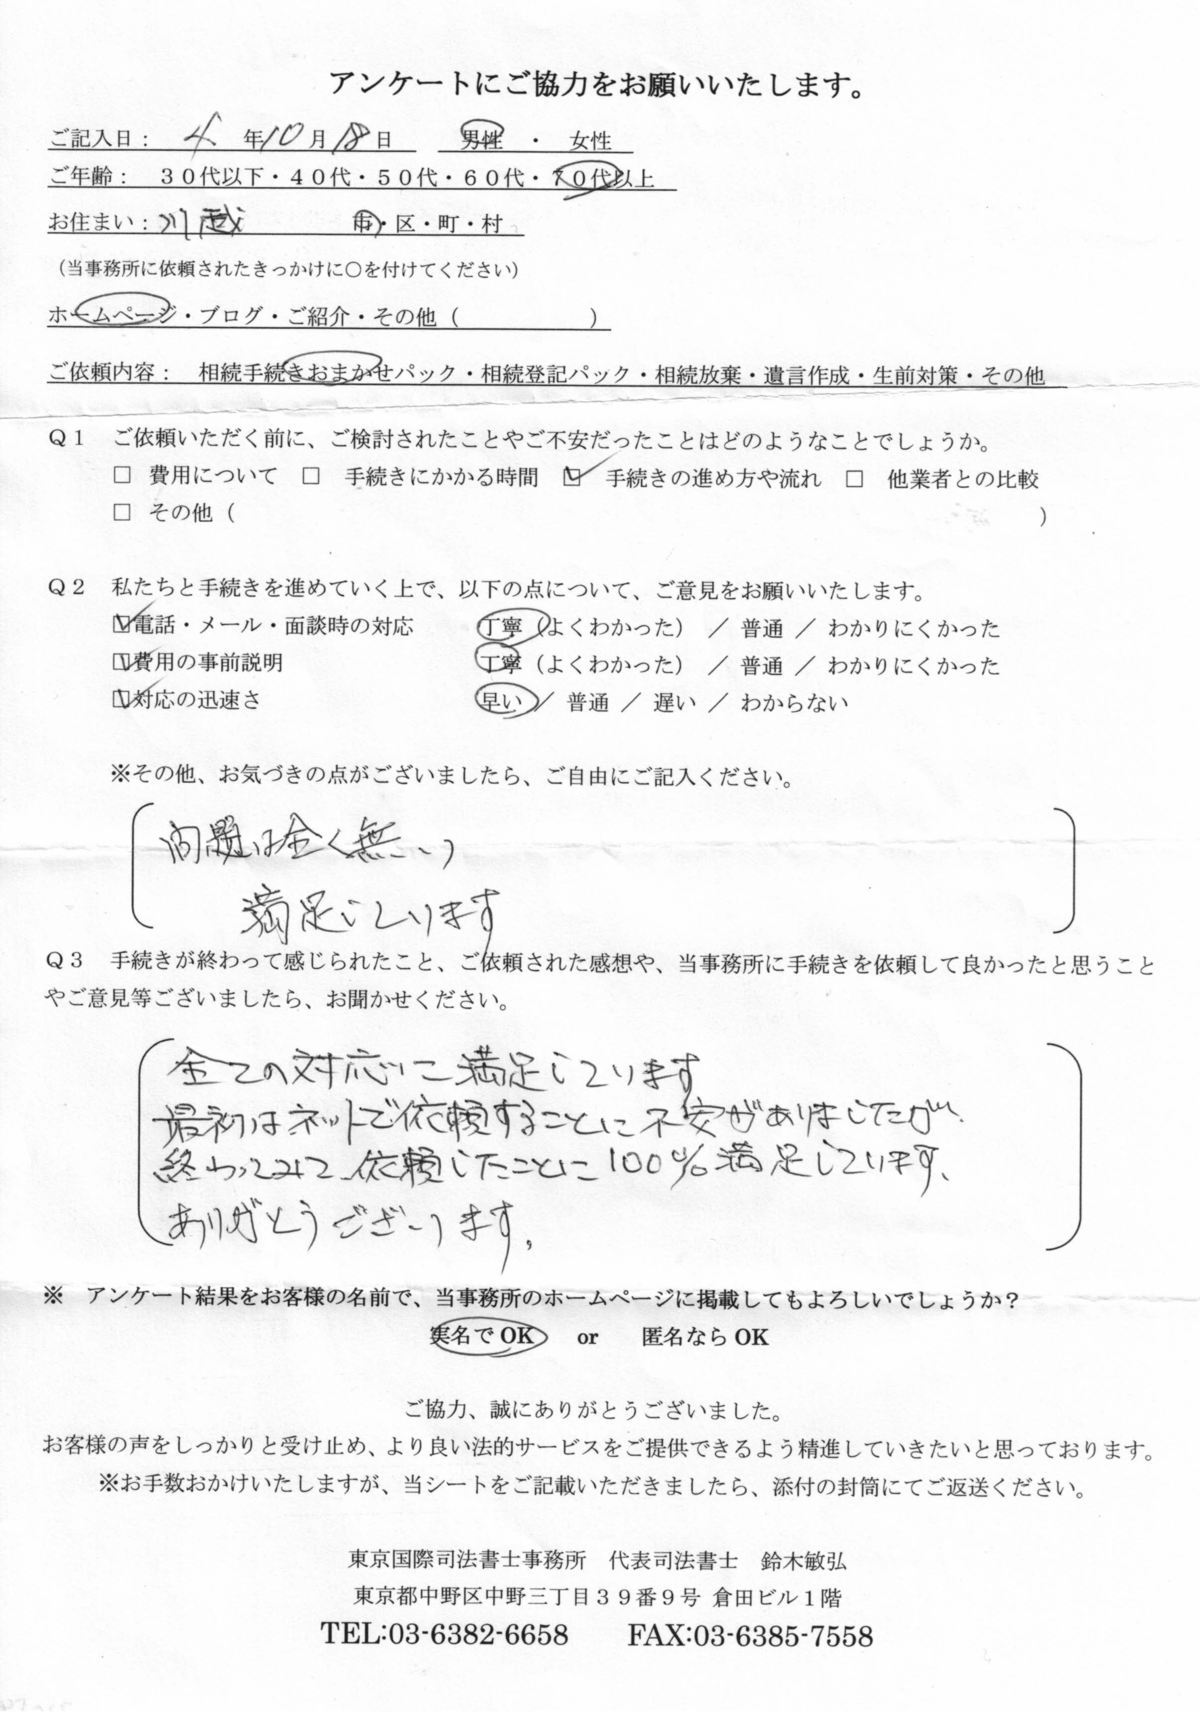 アンケートにご協力をお願いいたします。
ご記入日： 4 年10月18日 男性 ・ 女性
ご年齢： ３０代以下・４０代・５０代・６０代・７０代以上
お住まい：川越 市・区・町・村
（当事務所に依頼されたきっかけに○を付けてください）
ホームページ・ブログ・ご紹介・その他（ ）
ご依頼内容： 相続手続きおまかせパック・相続登記パック・相続放棄・遺言作成・生前対策・その他
Ｑ１ ご依頼いただく前に、ご検討されたことやご不安だったことはどのようなことでしょうか。
□ 費用について □ 手続きにかかる時間 ☑ 手続きの進め方や流れ □ 他業者との比較
□ その他（ ）
Ｑ２ 私たちと手続きを進めていく上で、以下の点について、ご意見をお願いいたします。
☑電話・メール・面談時の対応 丁寧（よくわかった） ／ 普通 ／ わかりにくかった
☑費用の事前説明 丁寧（よくわかった） ／ 普通 ／ わかりにくかった
☑対応の迅速さ 早い ／ 普通 ／ 遅い ／ わからない
※その他、お気づきの点がございましたら、ご自由にご記入ください。
問題は全く無い
満足しています
Ｑ３ 手続きが終わって感じられたこと、ご依頼された感想や、当事務所に手続きを依頼して良かったと思うこと
やご意見等ございましたら、お聞かせください。
全ての対応に満足しています
最初はネットで依頼することに不安がありましたが、
終わってみて依頼したことに100%満足しています、
ありがとうございます。
※ アンケート結果をお客様の名前で、当事務所のホームページに掲載してもよろしいでしょうか？
実名で OK or 匿名なら OK
ご協力、誠にありがとうございました。
お客様の声をしっかりと受け止め、より良い法的サービスをご提供できるよう精進していきたいと思っております。
※お手数おかけいたしますが、当シートをご記載いただきましたら、添付の封筒にてご返送ください。
東京国際司法書士事務所 代表司法書士 鈴木敏弘
東京都中野区中野三丁目３９番９号 倉田ビル１階
TEL:03-6382-6658 FAX:03-6385-7558